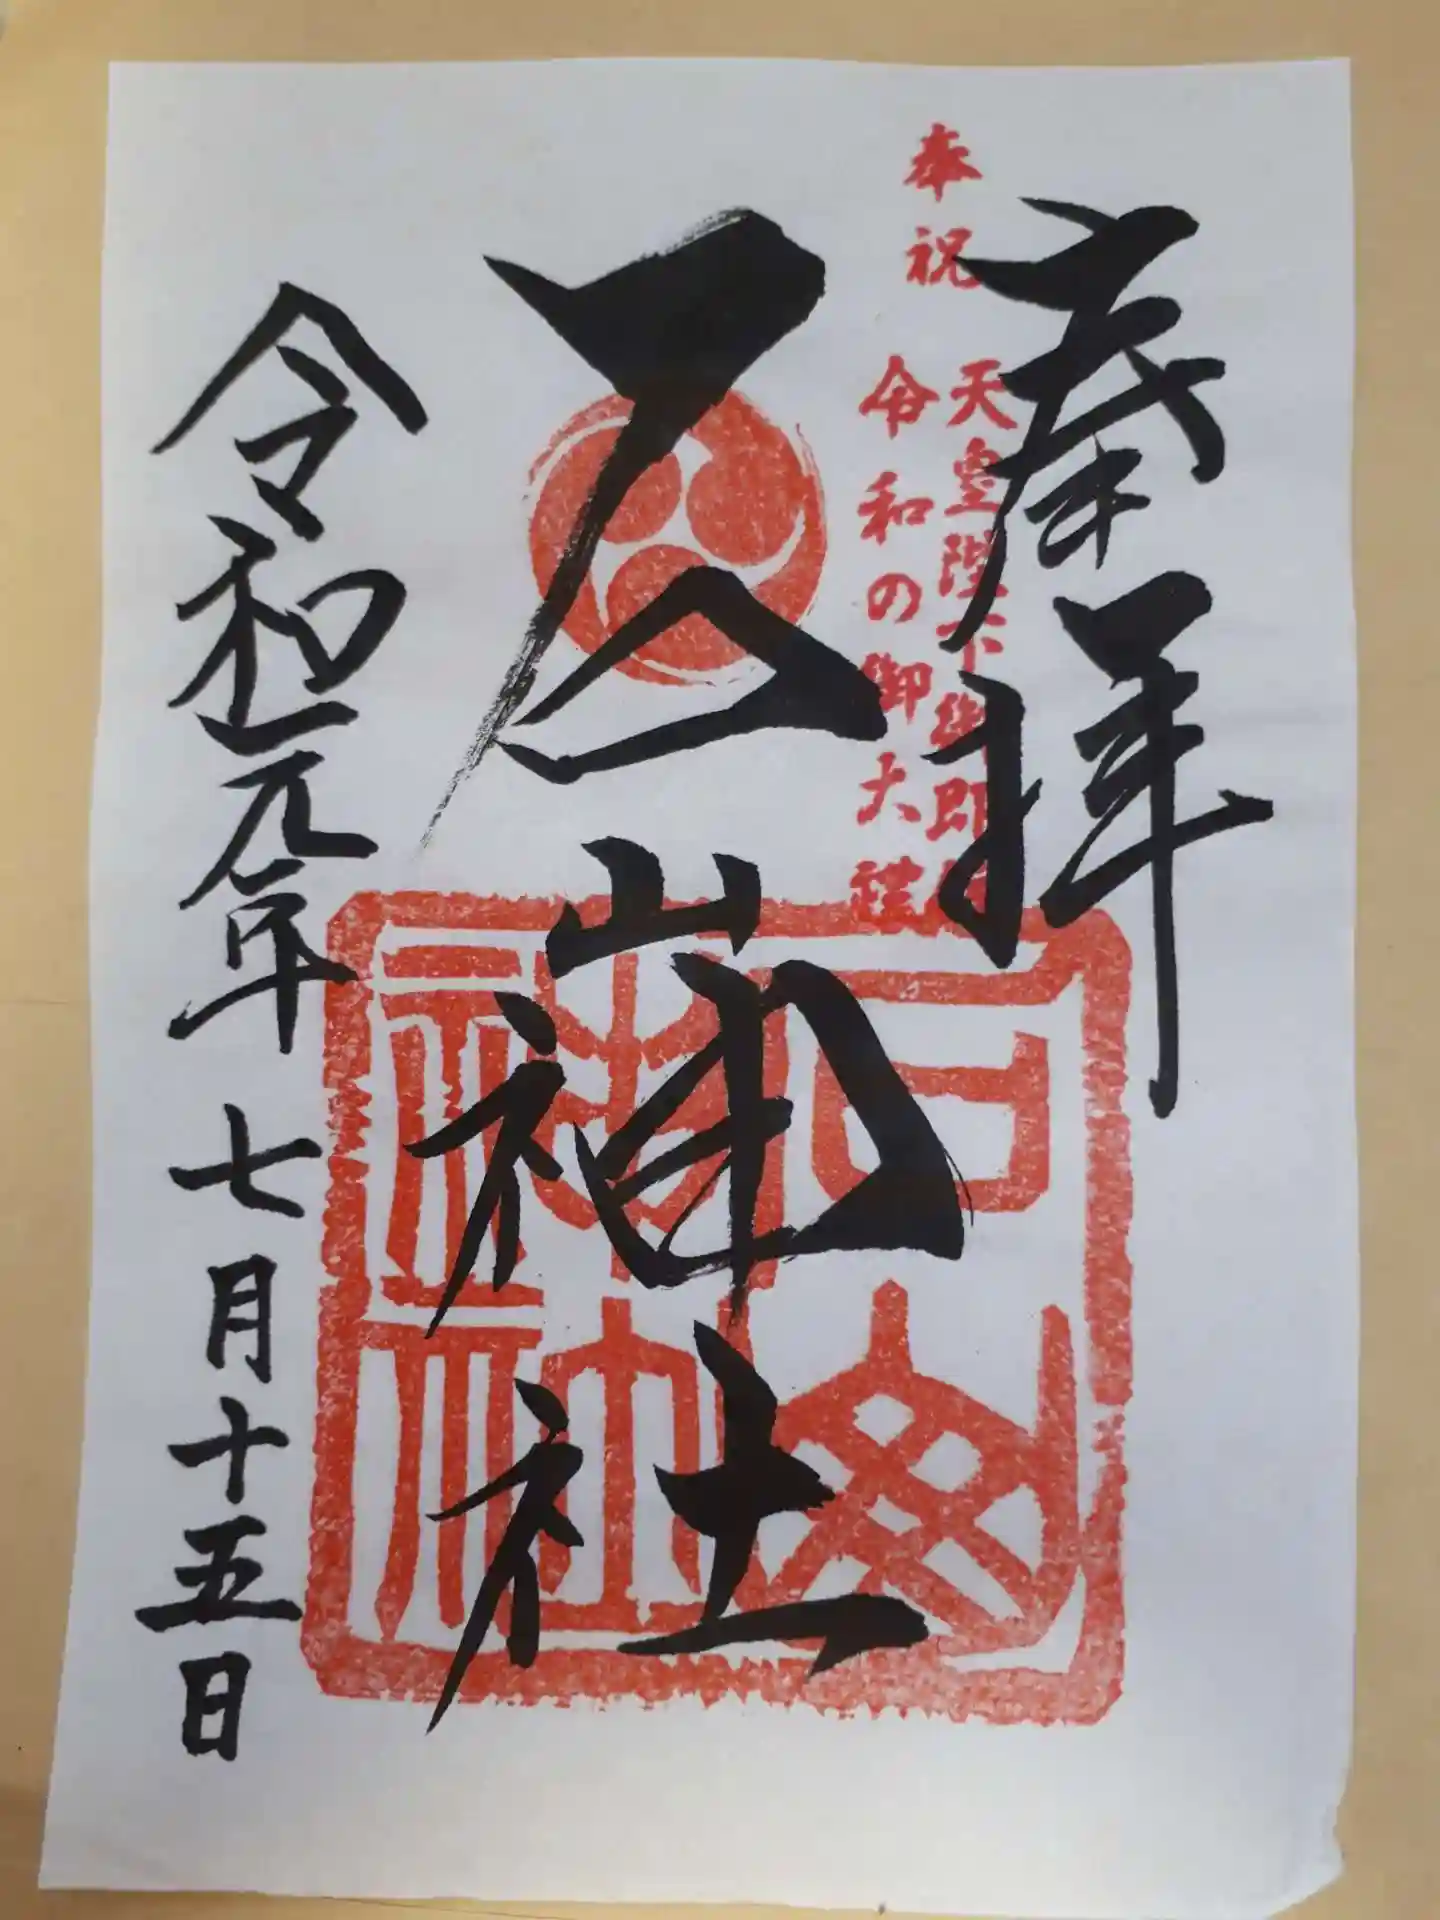 奉拝
奉祝
天皇陛下御即位
令和の御大禮
石山神社
石山神社
令和元年七月十五日